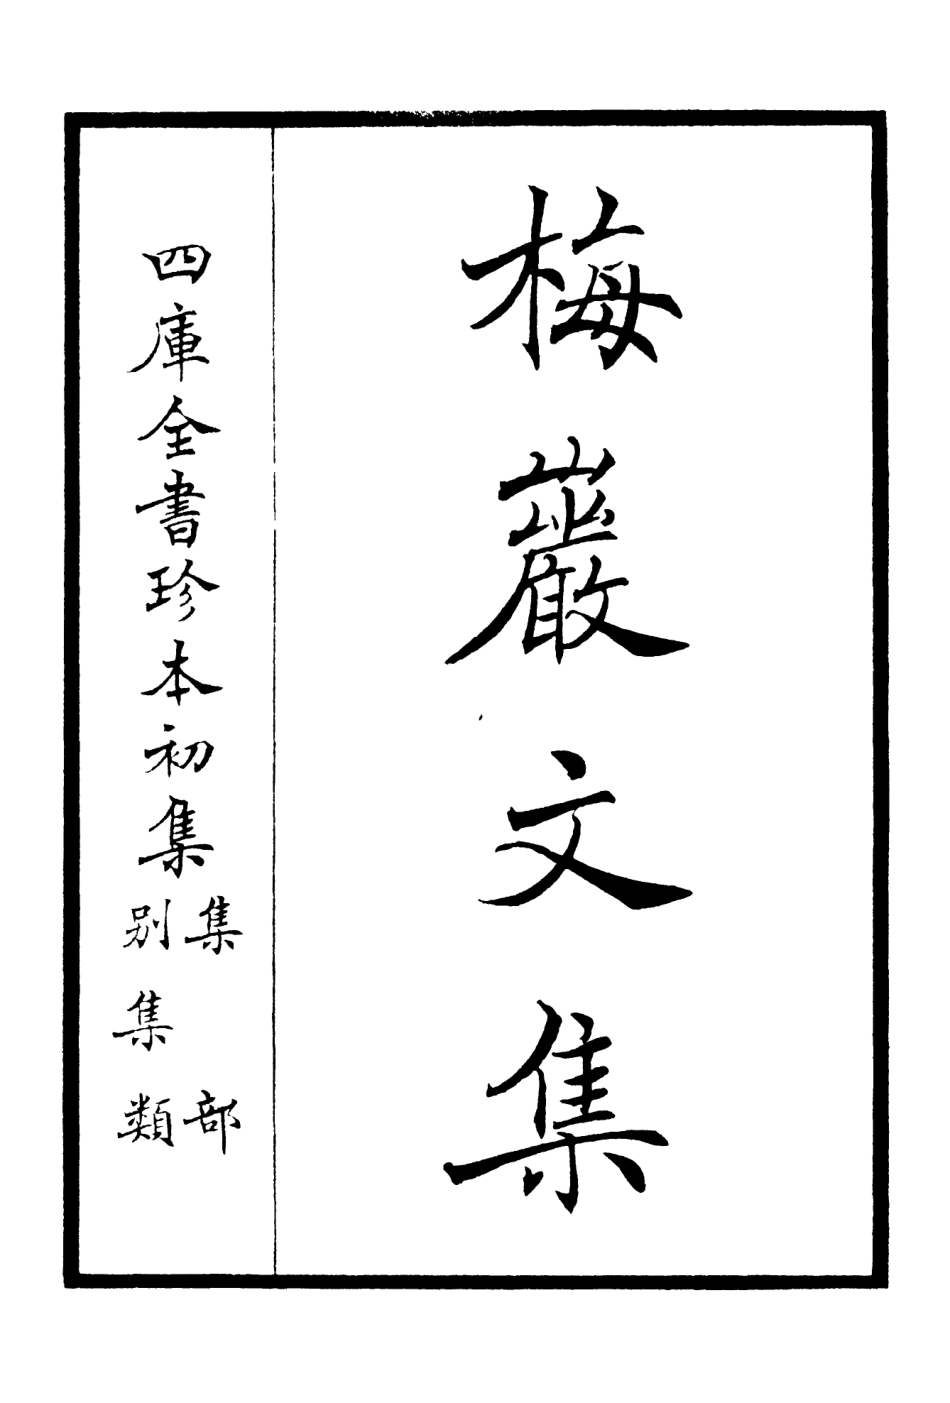 梅巖文集
四庫全書珍本初集
集部
別集類